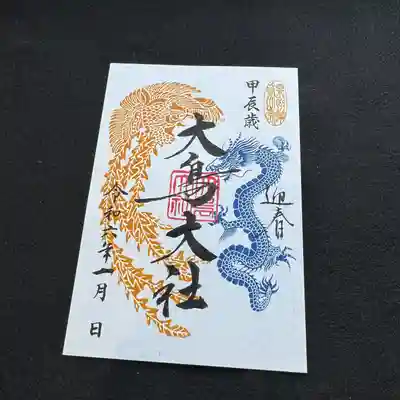 甲辰歳
迎春
大鳥大社
令和六年一月 日